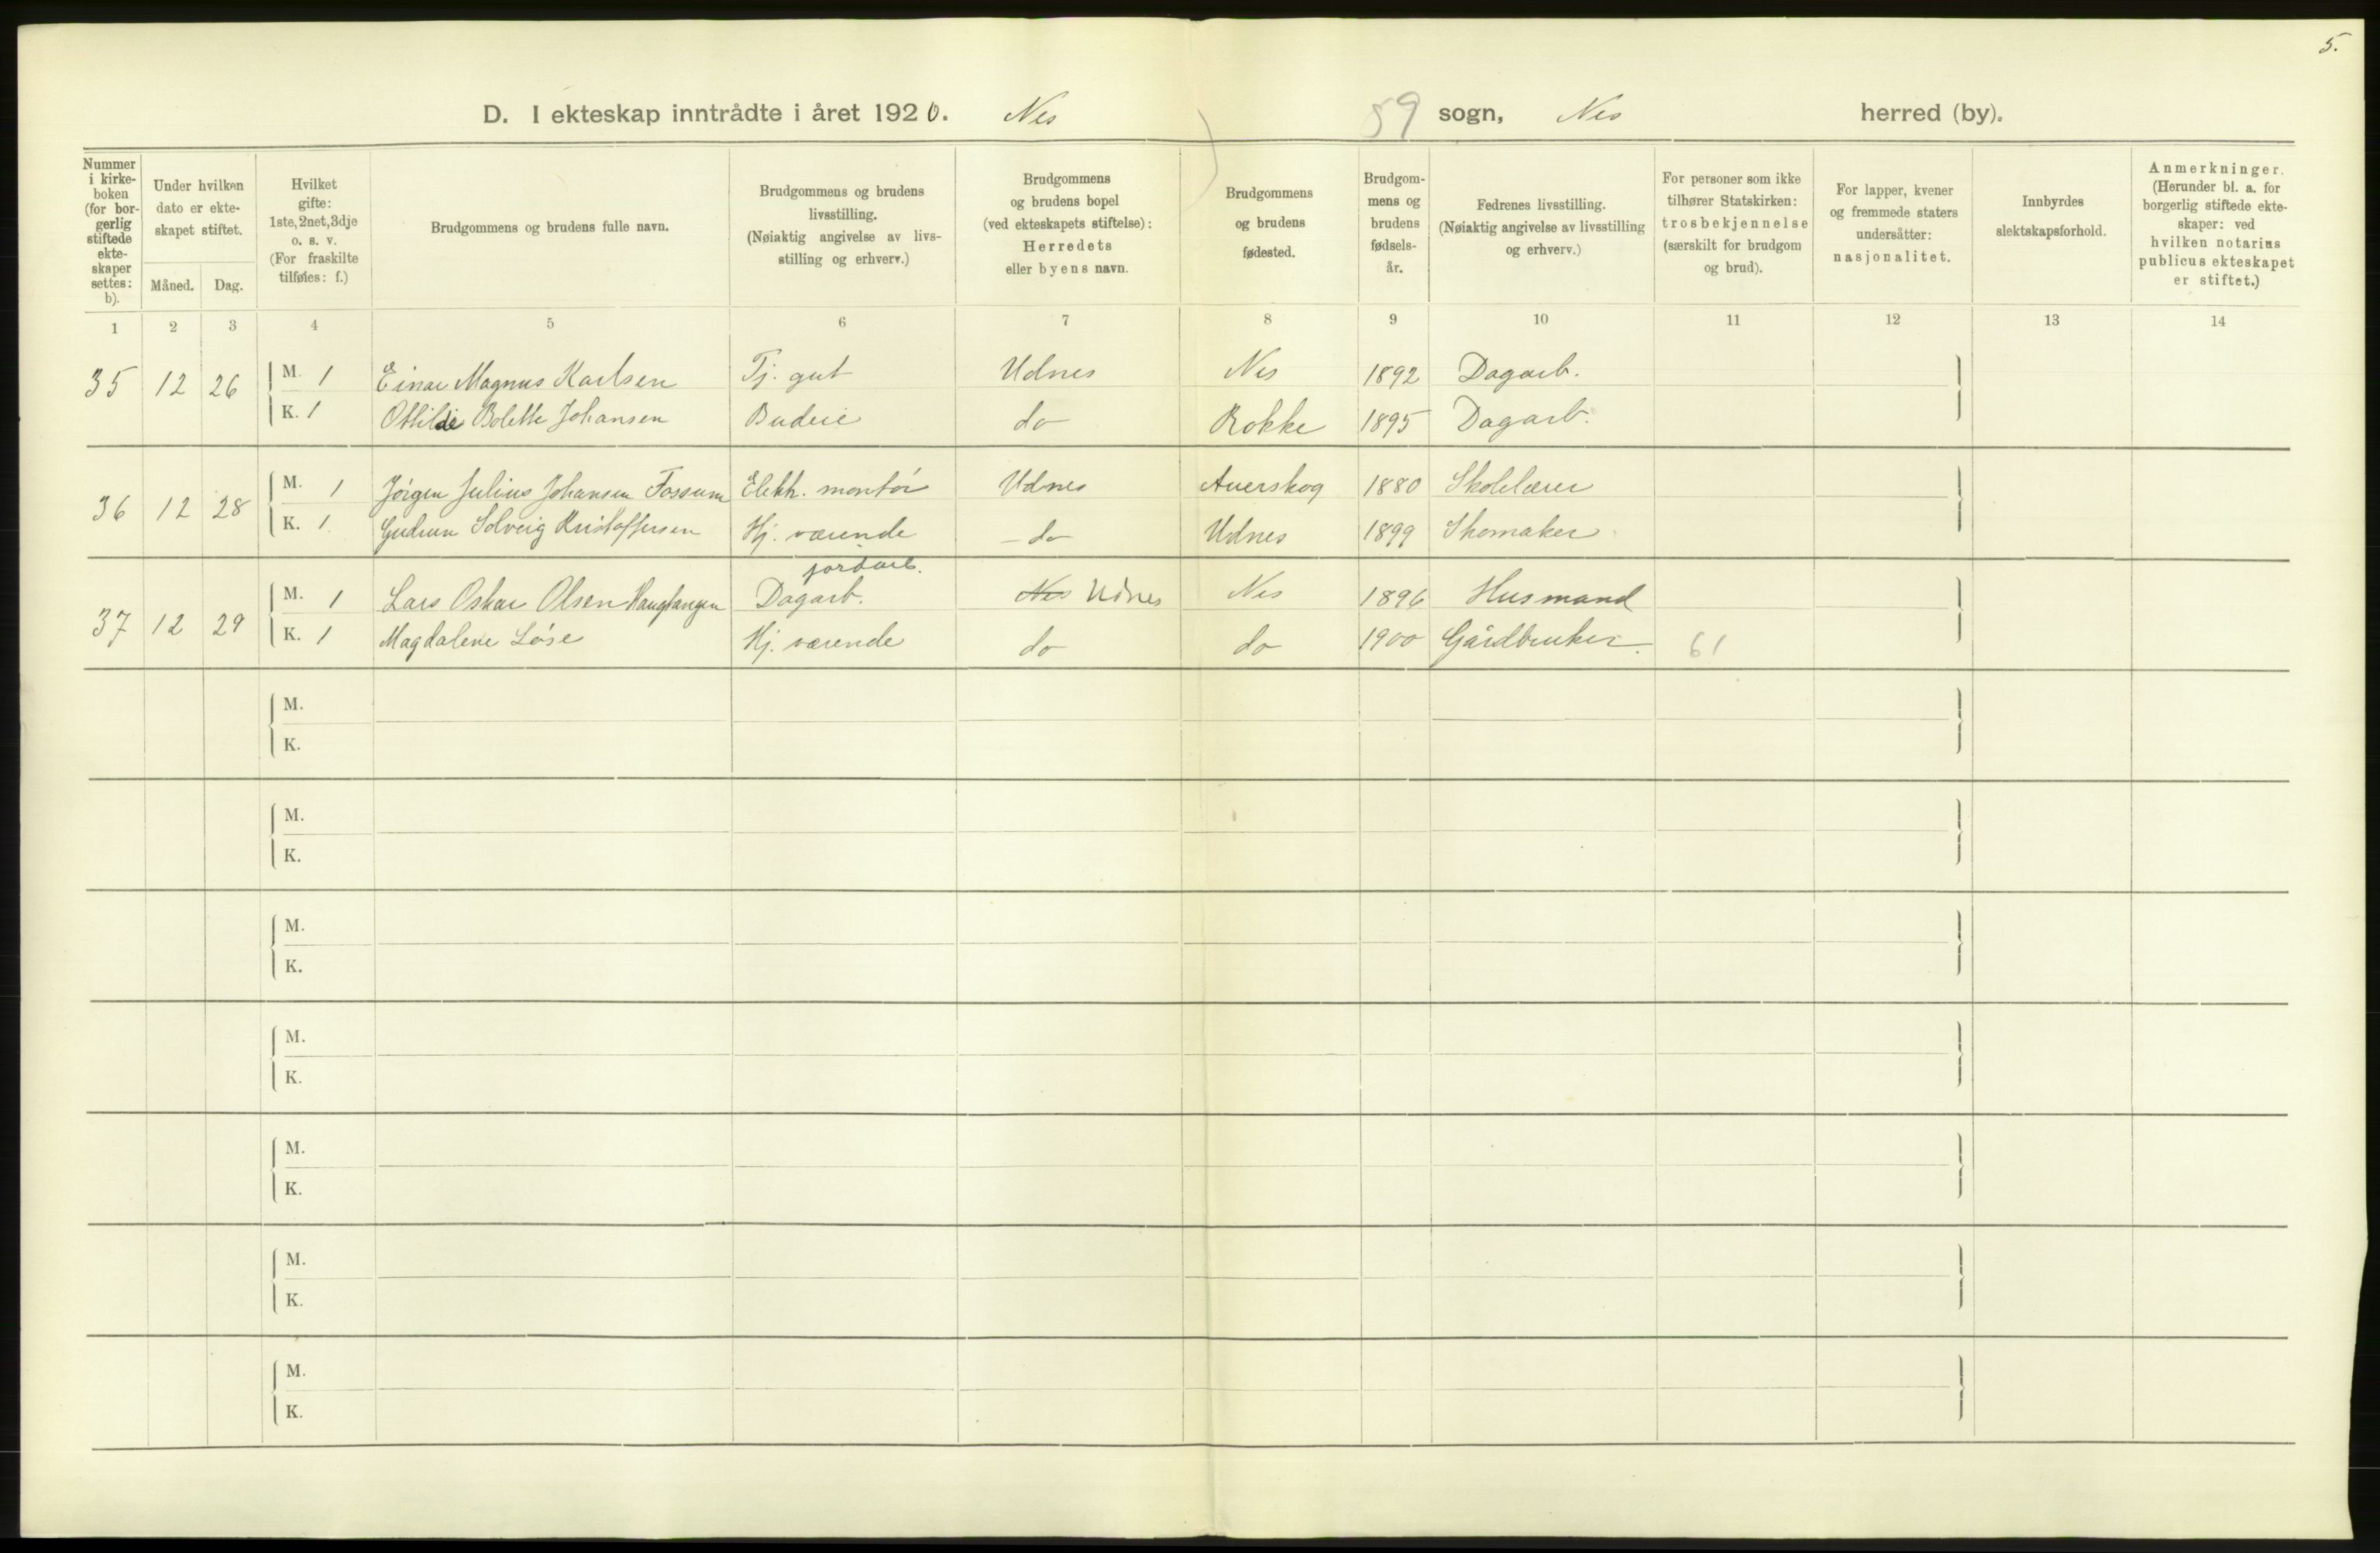 5.
D. I ekteskap inntrådte i året 1920. Nes 59 sogn, Nes herred (by).
Nummer i kirke-boken (for bor-gerlig stiftede ekte-skaper settes: b).
Under hvilken dato er ekte-skapet stiftet.
Måned. Dag.
Hvilket gifte: 1ste, 2net, 3dje o. s. v. (For fraskilte tilføies: f.)
Brudgommens og brudens fulle navn.
Brudgommens og brudens livsstilling. (Nøiaktig angivelse av livs-stilling og erhverv.)
Brudgommens og brudens bopel (ved ekteskapets stiftelse): Herredets eller byens navn.
Brudgommens og brudens fødested.
Brudgom-mens og brudens fødsels-år.
Fedrenes livsstilling. (Nøiaktig angivelse av livsstilling og erhverv.)
For personer som ikke tilhører Statskirken: trosbekjennelse (særskilt for brudgom og brud).
For lapper, kvener og fremmede staters undersåtter: nasjonalitet.
Innbyrdes slektskapsforhold.
Anmerkninger. (Herunder bl. a. for borgerlig stiftede ekte-skaper: ved hvilken notarius publicus ekteskapet er stiftet.)
1 2 3 4 5 6 7 8 9 10 11 12 13 14
35 12 26 M. 1 Einar Magnus Karlsen Tj. gut Udnes Nes 1892 Dagarb.
K. 1 Ottilde Bolette Johansen Budeie do Rokke 1895 Dagarb.
36 12 28 M. 1 Jörgen Julius Johansen Fossum Elektr. montör Udnes Auerskog 1880 Skolelærer
K. 1 Gudrun Solveig Kristoffersen Hj. værende do Udnes 1899 Skomaker
jordarb.
37 12 29 M. 1 Lars Oskar Olsen Haugtangen Dagarb. Nes Udnes Nes 1896 Husmand
K. 1 Magdalene Löse Hj. værende do do 1900 Gårdbruker. 61
M.
K.
M.
K.
M.
K.
M.
K.
M.
K.
M.
K.
M.
K.